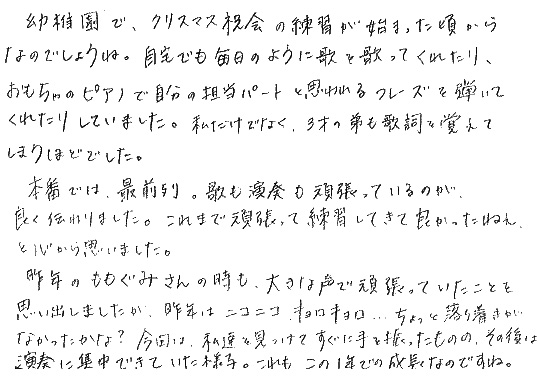 幼稚園で、クリスマス祝会の練習が始まった頃から
なのでしょうね。自宅でも毎日のように歌を歌ってくれたり、
おもちゃのピアノで自分の担当パートと思われるフレーズを弾いて
くれたりしていました。私だけでなく、3才の弟も歌詞を覚えて
しまうほどでした。
本番では、最前列。歌も演奏も頑張っているのが、
良く伝わりました。これまで頑張って練習してきて良かったねえ、
と心から思いました。
昨年のももぐみさんの時も、大きな声で頑張っていたことを
思い出しましたが、昨年はニコニコ、キョロキョロ...ちょっと落ち着きが
なかったかな?今回は、私達を見つけてすぐに手を振ったものの、その後は
演奏に集中できていた様子。これも、この1年での成長なのですね。